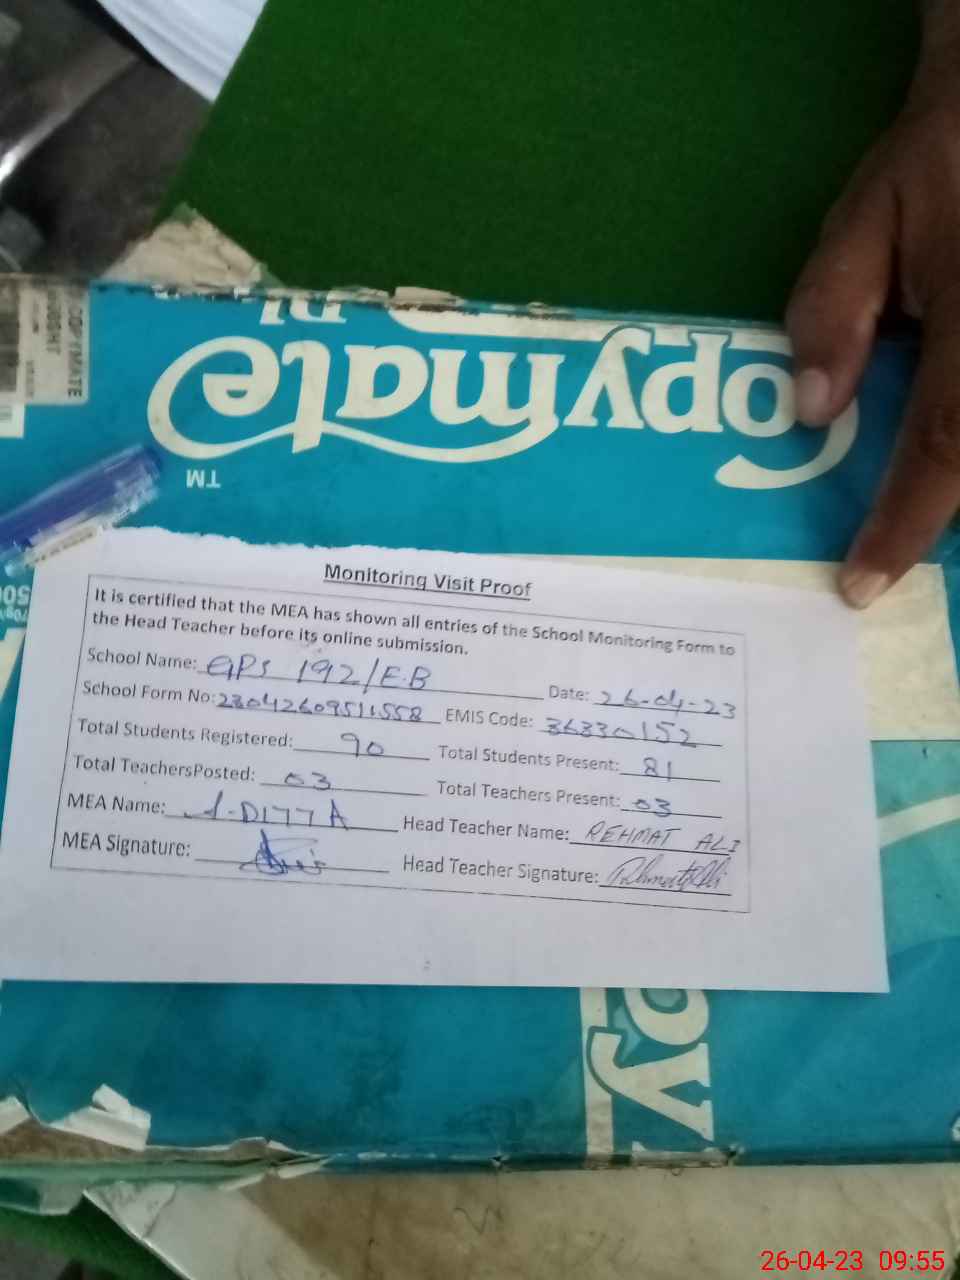 COPYMATE
Copymate
TM
Monitoring Visit Proof
It is certified that the MEA has shown all entries of the School Monitoring Form to
the Head Teacher before its online submission.
School Name: GPS 192/E.B Date: 26-04-23
School Form No: 23042609511558 EMIS Code: 36330152
Total Students Registered: 90 Total Students Present: 81
Total TeachersPosted: 03 Total Teachers Present: 03
MEA Name: D177A Head Teacher Name: REHMAT ALI
MEA Signature: Head Teacher Signature: Rehmat Ali
opy
26-04-23 09:55